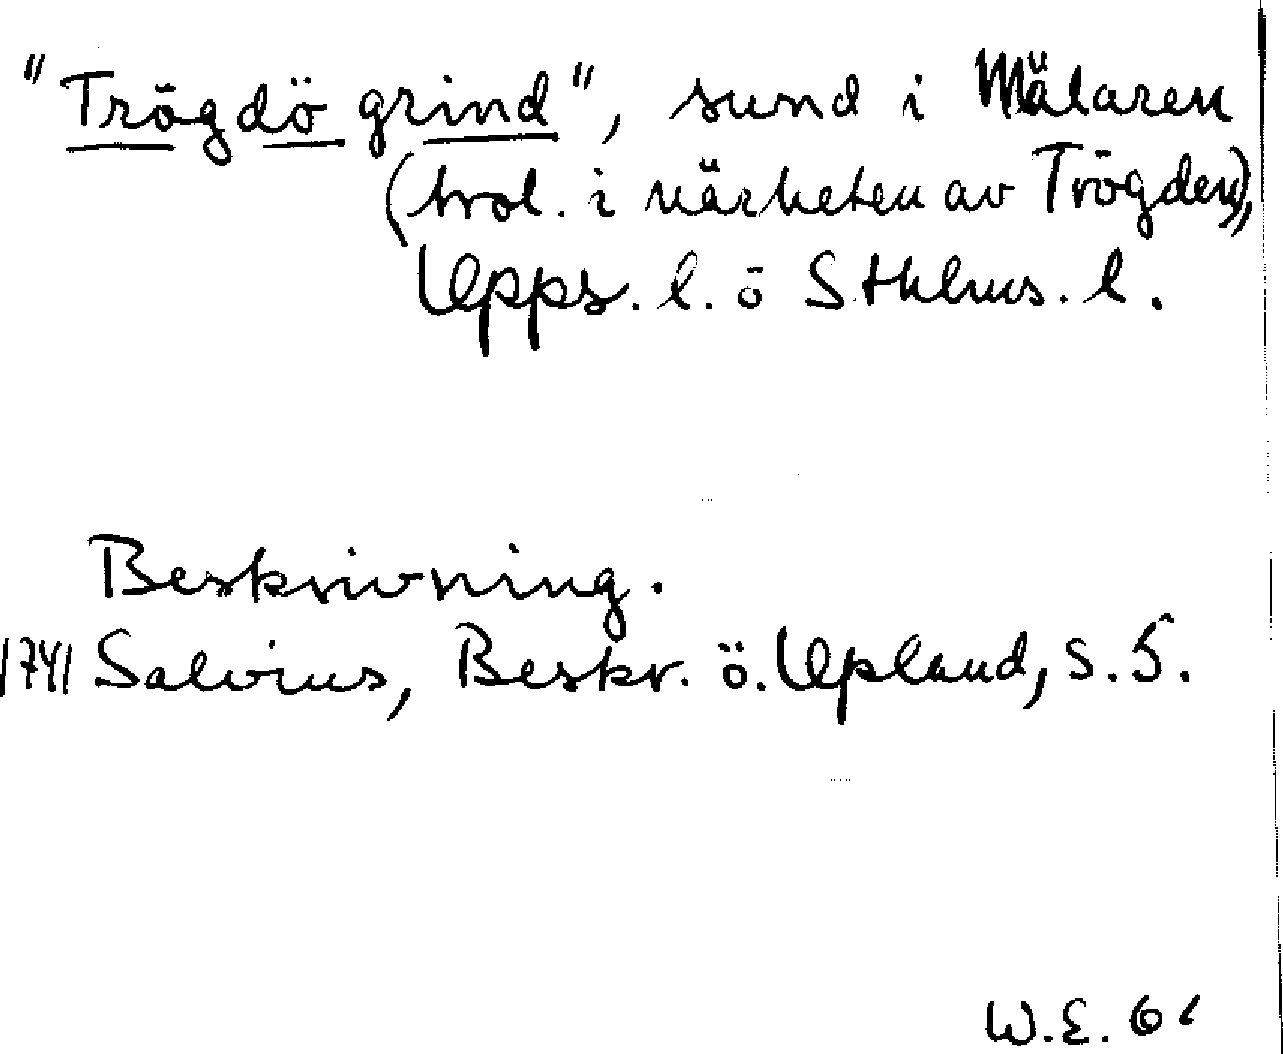 "Trögdö grind", sund i Mälaren
(trol. i närheten av Trögden),
Upps. l. ö Sthlms. l.
Beskrivning.
1741 Salvius, Beskr. ö. Upland, s. 5.
W.E. 61